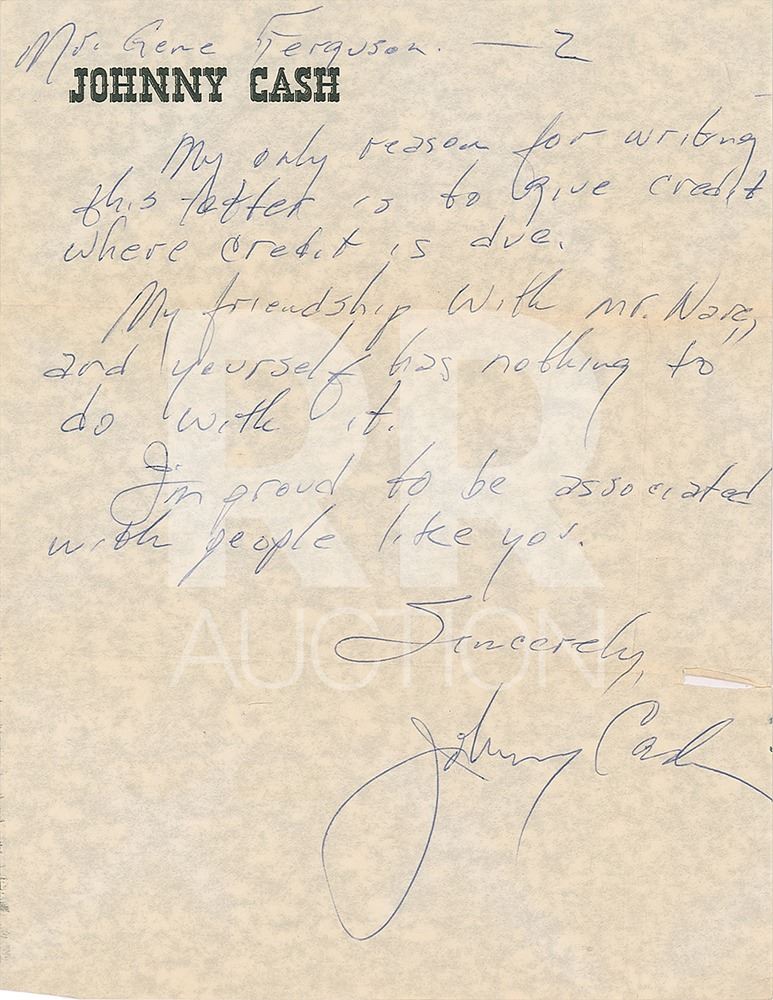 Mr. Gene Ferguson. — 2
JOHNNY CASH
My only reason for writing
this letter is to give credit
where credit is due.
My friendship with Mr.
and yourself has nothing to
do with it.
I'm proud to be associated
with people like you.
Sincerely,
Johnny Cash
RR
AUCTION